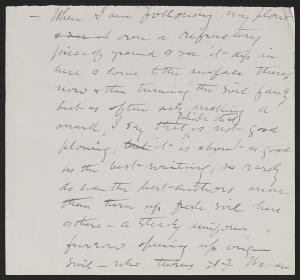 — When I am following my plow
& over a refractory
piece of ground & see it dip in
here & come to the surface there,
now & then turning the soil fairly
but as often only making a
mark, I say while that is not good
plowing, it is about as good
as the best writing, so rarely
do even the best authors more
than turn up fresh soil here
& there — a steady uniform
furrow opening up virgin
soil — who turns it? We are